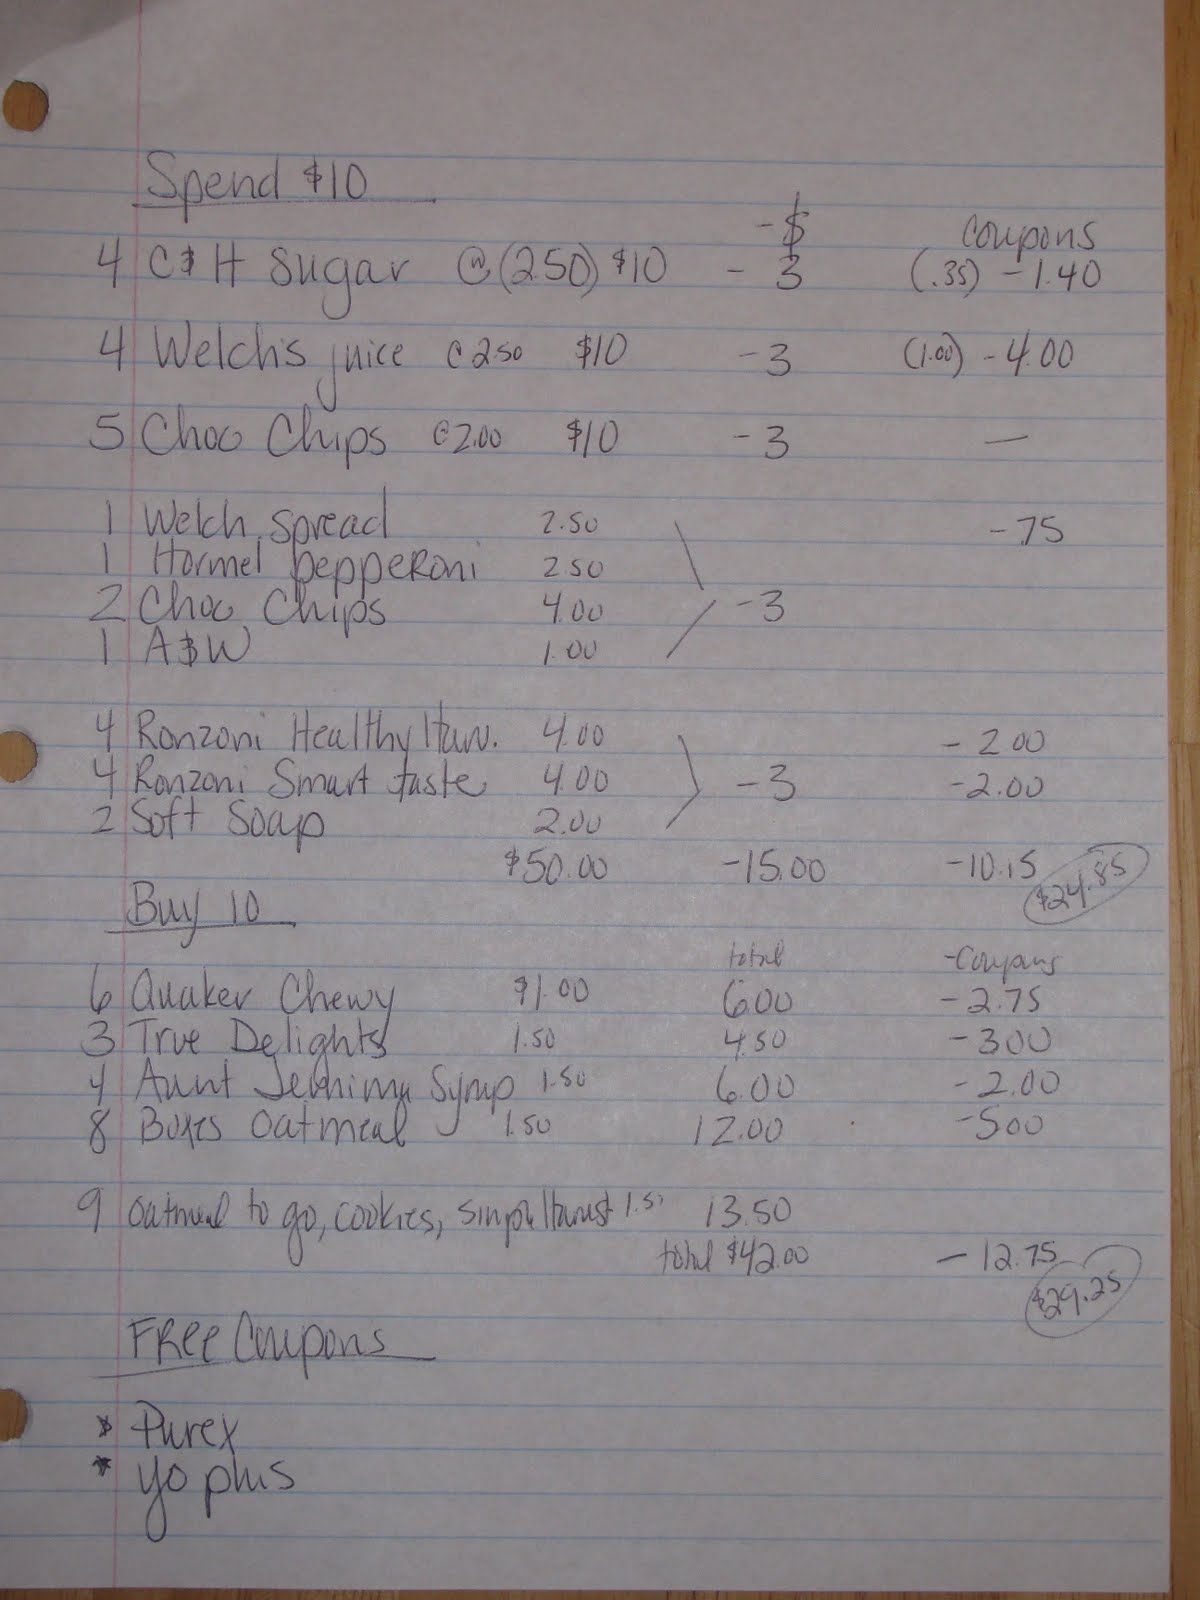 Spend $10
-$ coupons
4 C&H Sugar @ (2.50) $10 - 3 (.35) -1.40
4 Welch's juice @ 2.50 $10 -3 (1.00) -4.00
5 Choc Chips @ 2.00 $10 -3 —
1 Welch spread 2.50 -75
1 Hormel pepperoni 2.50
2 Choc Chips 4.00 -3
1 A&W 1.00
4 Ronzoni Healthy Harv. 4.00 -2.00
4 Ronzoni Smart taste 4.00 -3 -2.00
2 Soft Soap 2.00
$50.00 -15.00 -10.15 $24.85
Buy 10
total -Coupons
6 Quaker Chewy $1.00 6.00 -2.75
3 True Delights 1.50 4.50 -3.00
4 Aunt Jemima Syrup 1.50 6.00 -2.00
8 Boxes Oatmeal 1.50 12.00 -5.00
9 Oatmeal to go, cookies, simple Harvest 1.5 13.50
total $42.00 -12.75
$29.25
FREE Coupons
* Purex
* yo plus